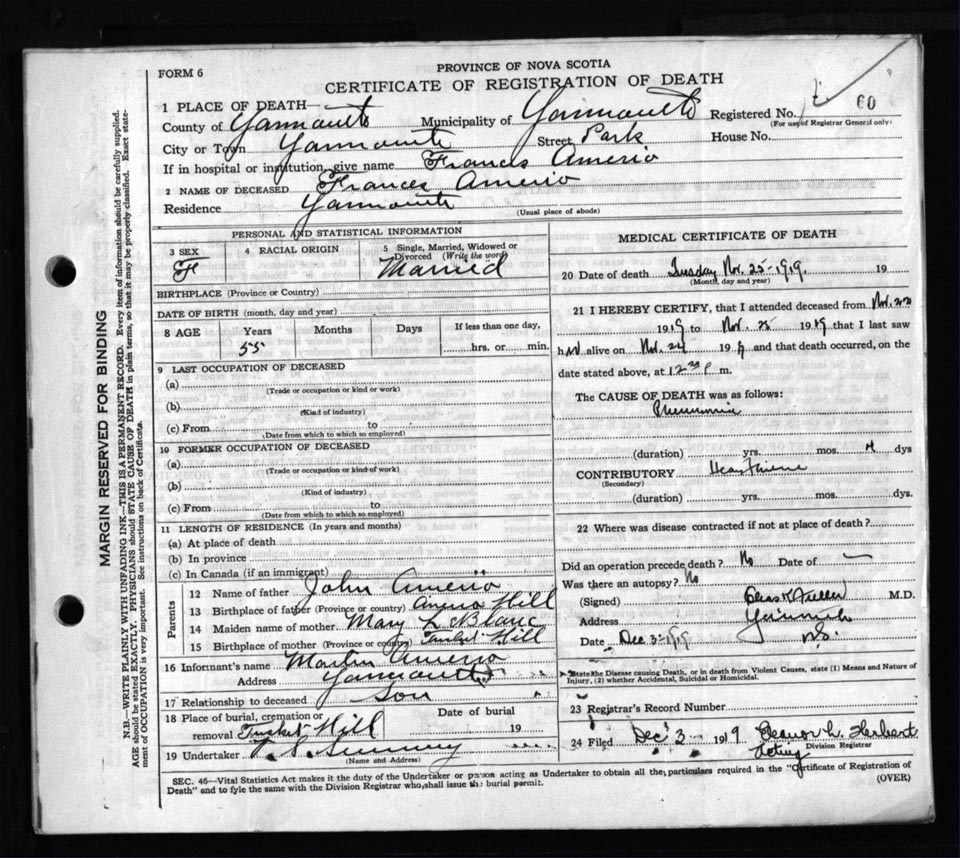 PROVINCE OF NOVA SCOTIA
FORM 6
CERTIFICATE OF REGISTRATION OF DEATH
60
1 PLACE OF DEATH—
County of Yarmouth Municipality of Yarmouth Registered No.
(For use of Registrar General only)
City or Town Yarmouth Street Park House No.
If in hospital or institution, give name Frances Amerio
2 NAME OF DECEASED Frances Amerio
Residence Yarmouth
(Usual place of abode)
MARGIN RESERVED FOR BINDING
N.B.—WRITE PLAINLY WITH UNFADING INK—THIS IS A PERMANENT RECORD. Every item of information should be carefully supplied.
AGE should be stated EXACTLY. PHYSICIANS should STATE CAUSE OF DEATH in plain terms, so that it may be properly classified. Exact state-
ment of OCCUPATION is very important. See instructions on back of Certificate.
PERSONAL AND STATISTICAL INFORMATION
3 SEX
F
4 RACIAL ORIGIN
5 Single, Married, Widowed or
Divorced (Write the word)
Married
BIRTHPLACE (Province or Country)
DATE OF BIRTH (month, day and year)
8 AGE Years Months Days If less than one day,
55 hrs. or min.
9 LAST OCCUPATION OF DECEASED
(a)
(Trade or occupation or kind or work)
(b)
(Kind of industry)
(c) From to
(Date from which to which so employed)
10 FORMER OCCUPATION OF DECEASED
(a)
(Trade or occupation or kind of work)
(b)
(Kind of industry)
(c) From to
(Date from which to which so employed)
11 LENGTH OF RESIDENCE (In years and months)
(a) At place of death
(b) In province
(c) In Canada (if an immigrant)
Parents
12 Name of father John Amerio
13 Birthplace of father (Province or country) Amero Hill
14 Maiden name of mother Mary L Blanc
15 Birthplace of mother (Province or country) Tusket Hill
16 Informant's name Martin Amerio
Address Yarmouth
17 Relationship to deceased Son
18 Place of burial, cremation or Date of burial
removal Tusket Hill 19
19 Undertaker V. S. Sweeney
(Name and Address)
MEDICAL CERTIFICATE OF DEATH
20 Date of death Tuesday Nov. 25-1919. 19
(Month, day and year)
21 I HEREBY CERTIFY, that I attended deceased from Nov. 22
1919 to Nov. 25 1919 that I last saw
her alive on Nov. 24 1919 and that death occurred, on the
date stated above, at 12 P m.
The CAUSE OF DEATH was as follows:
Pneumonia
(duration) yrs. mos. 4 dys
CONTRIBUTORY Heart failure
(Secondary)
(duration) yrs. mos. dys.
22 Where was disease contracted if not at place of death?
Did an operation precede death? No Date of —
Was there an autopsy? No
(Signed) Chas K Fuller M.D.
Address Yarmouth
N.S.
Date Dec 3-1919
State the Disease causing Death, or in death from Violent Causes, state (1) Means and Nature of
Injury, (2) whether Accidental, Suicidal or Homicidal.
23 Registrar's Record Number
24 Filed Dec. 3 1919 Eleanor L. Herbert
Division Registrar
Acting
SEC. 46—Vital Statistics Act makes it the duty of the Undertaker or person acting as Undertaker to obtain all the, particulars required in the "Certificate of Registration of
Death" and to fyle the same with the Division Registrar who, shall issue the burial permit.
(OVER)